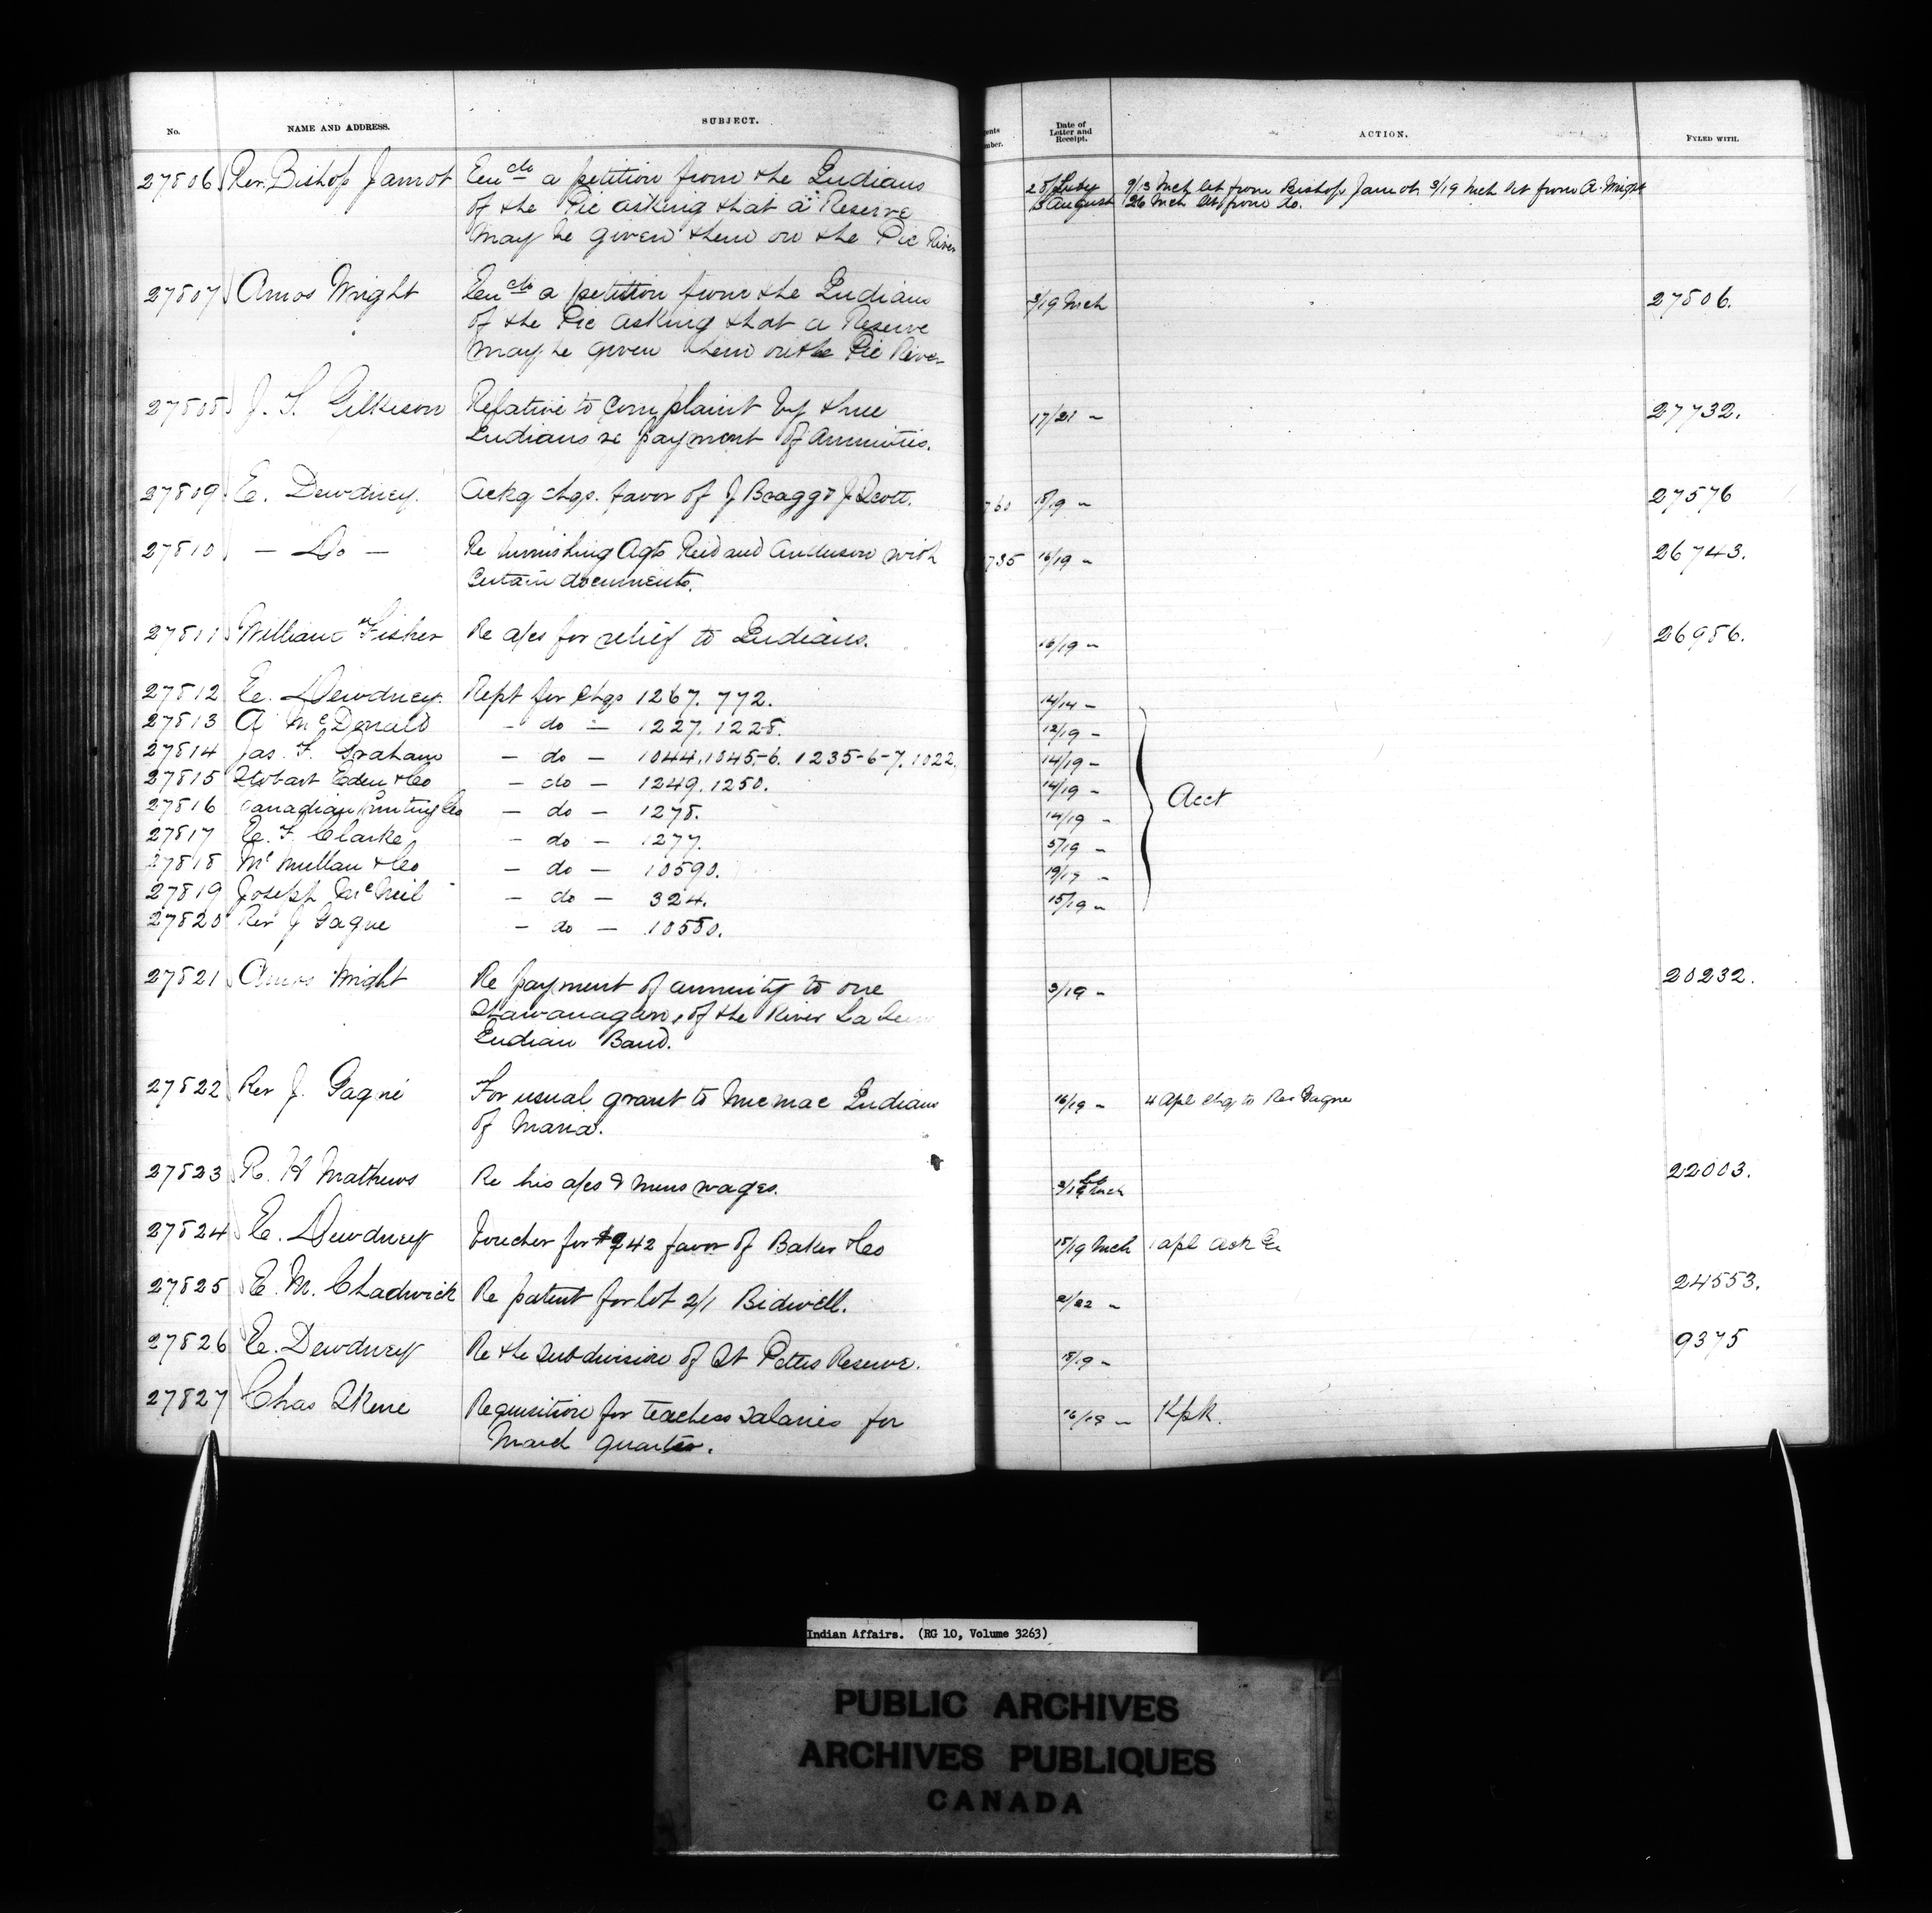 No. NAME AND ADDRESS. SUBJECT. Date of Letter and Receipt. ACTION. FYLED WITH.
27806 Rev. Bishop Jamot Encdo a petition from the Indians 28 July 9/13 Mch let from Bishop Jamot 3/19 Mch let from A. Wright
of the Pic asking that a Reserve 13 August 26 Mch let from do.
may be given them on the Pic River
27807 Amos Wright Encdo a petition from the Indians 3/19 Mch 27806.
of the Pic asking that a Reserve
may be given them on the Pic River
27808 J. T. Gilkison Relative to complaint by three 17/21 " 27732.
Indians re payment of annuities.
27809 E. Dewdney. Ackg chqs. favor of J Bragg & J Scott. 760 15/19 " 27576
27810 — Do — Re furnishing Agts Reid and Anderson with 735 16/19 " 26743.
certain documents.
27811 William Fisher Re a/cs for relief to Indians. 16/19 " 26986.
27812 E. Dewdney. Rept for chqs 1267. 772. 14/14 "
27813 A McDonald — do — 1227. 1228. 12/19 "
27814 Jas. F. Graham — do — 1044. 1045-6. 1235-6-7. 1022. 14/19 "
27815 Stobart Eden & Co — do — 1249. 1250. 14/19 " Acct
27816 Canadian Printing Co — do — 1278. 14/19 "
27817 E. F. Clarke — do — 1277. 5/19 "
27818 McMullan & Co — do — 10590. 19/19 "
27819 Joseph McNeil — do — 324. 15/19 "
27820 Rev J Gagne — do — 10580.
27821 Amos Wright Re payment of annuity to one 3/19 " 20232.
of the River La
Indian Band.
27822 Rev J. Gagné For usual grant to Micmac Indians 16/19 " 4 Apl chq to Rev Gagne
of Maria.
27823 R. H Mathews Re his a/cs & mens wages. 22003.
27824 E. Dewdney Voucher for $942 favor of Baker & Co 15/19 Mch 1 apl ack
27825 E. M. Chadwick Re patent for lot 2/1 Bidwell. 2/22 " 24553.
27826 E. Dewdney Re the subdivision of St Peters Reserve. 15/19 " 9375
27827 Chas Skene Requisition for teachers salaries for 16/19 "
March quarter.
Indian Affairs. (RG 10, Volume 3263)
PUBLIC ARCHIVES
ARCHIVES PUBLIQUES
CANADA